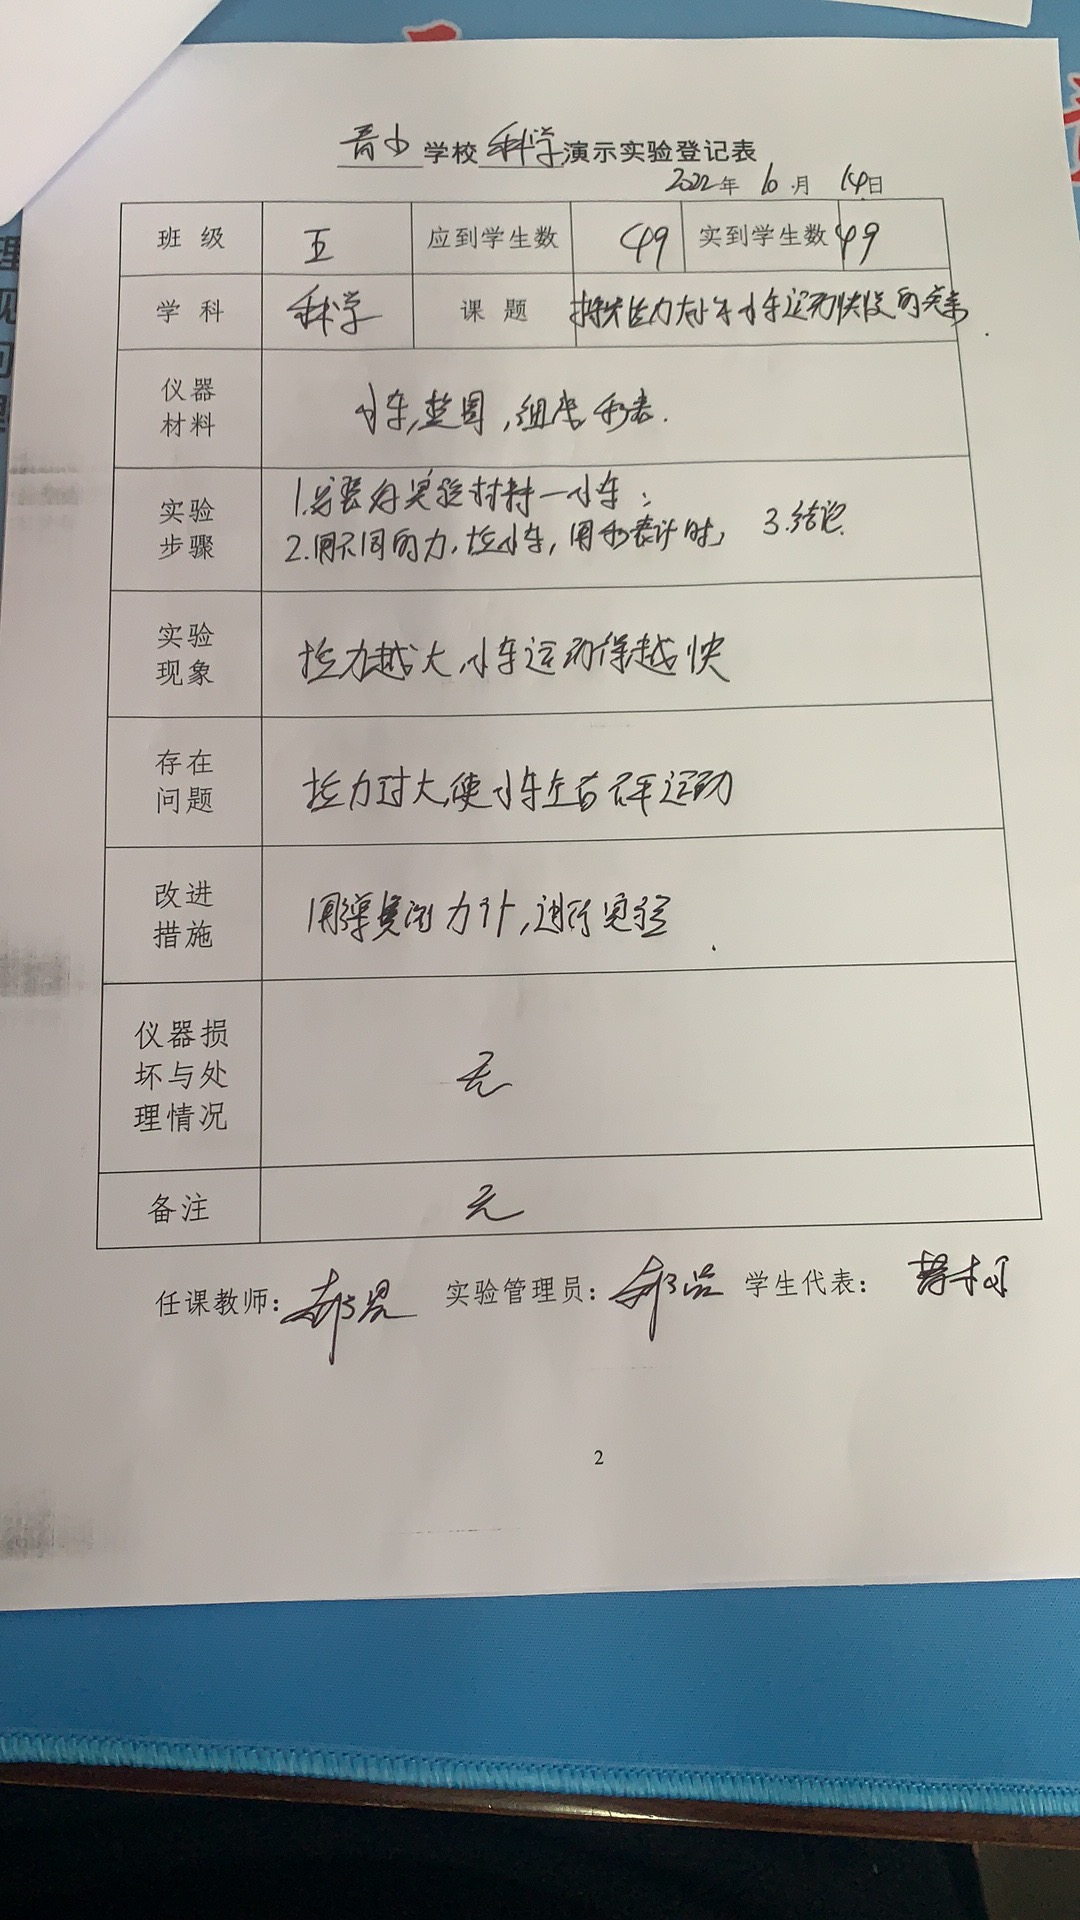 青小学校科学演示实验登记表
2022年10月14日
班级 五 应到学生数 49 实到学生数 49
学科 科学 课题 探究拉力大小与小车运动快慢的关系
仪器材料 小车,垫圈,细绳,秒表.
实验步骤 1.安装好实验材料一小车;
2.用不同的力,拉小车,用秒表计时, 3.结论.
实验现象 拉力越大,小车运动得越快
存在问题 拉力过大,使小车左右运动
改进措施 用弹簧测力计,进行实验
仪器损坏与处理情况 无
备注 无
任课教师: 实验管理员: 学生代表:
2